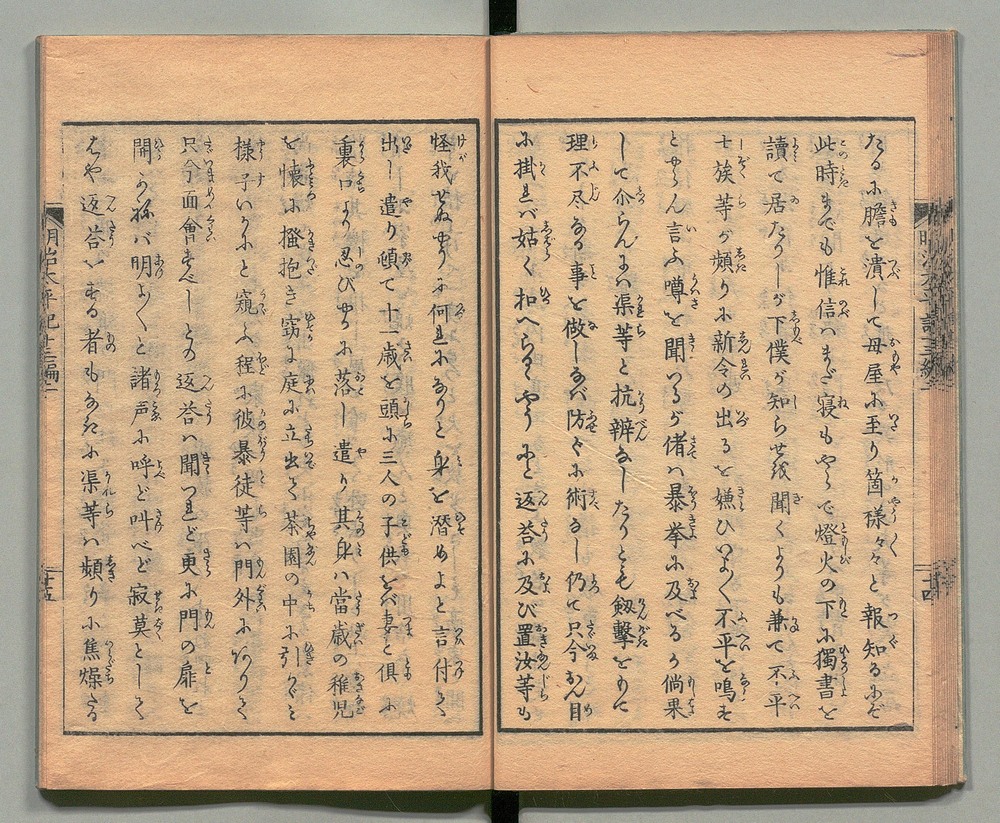 たるに膽を潰して母屋に至り箇様々々と報知るにぞ
此時までも惟信ハまだ寝もやらで燈火の下に獨書を
讀て居たりしが下僕が知らせを聞くよりも兼て不平
士族等が頻りに新令の出るを嫌ひいよ〳〵不平を鳴す
とやらん言ふ噂を聞つるが偖ハ暴挙に及べるか倘果
して尒らんにハ渠等と抗辨なしたりとも劔擊をもて
理不尽なる事を做しなバ防ぐに術なし仍て只今おん目
に掛れバ姑く扣へらるべきやうにと返荅に及び置汝等も
怪我せぬやうに何れになりと身を潛めよと言付て
出し遣り頓て十一歳を頭に三人の子供をバ妻と俱に
裏口より忍びやかに落し遣り其身ハ當歳の稚児
を懐に搔抱き窈に庭に立出て茶園の中に引そひ
様子いかにと窺ふ程に彼暴徒等ハ門外にありて
只今面會すべしとの返荅ハ聞つれど更に門の扉を
開かねバ明よ〳〵と諸声に呼ど叫べど寂莫として
はや返荅いする者もなきに渠等ハ頻りに焦燥たる
明治太平記十三編二